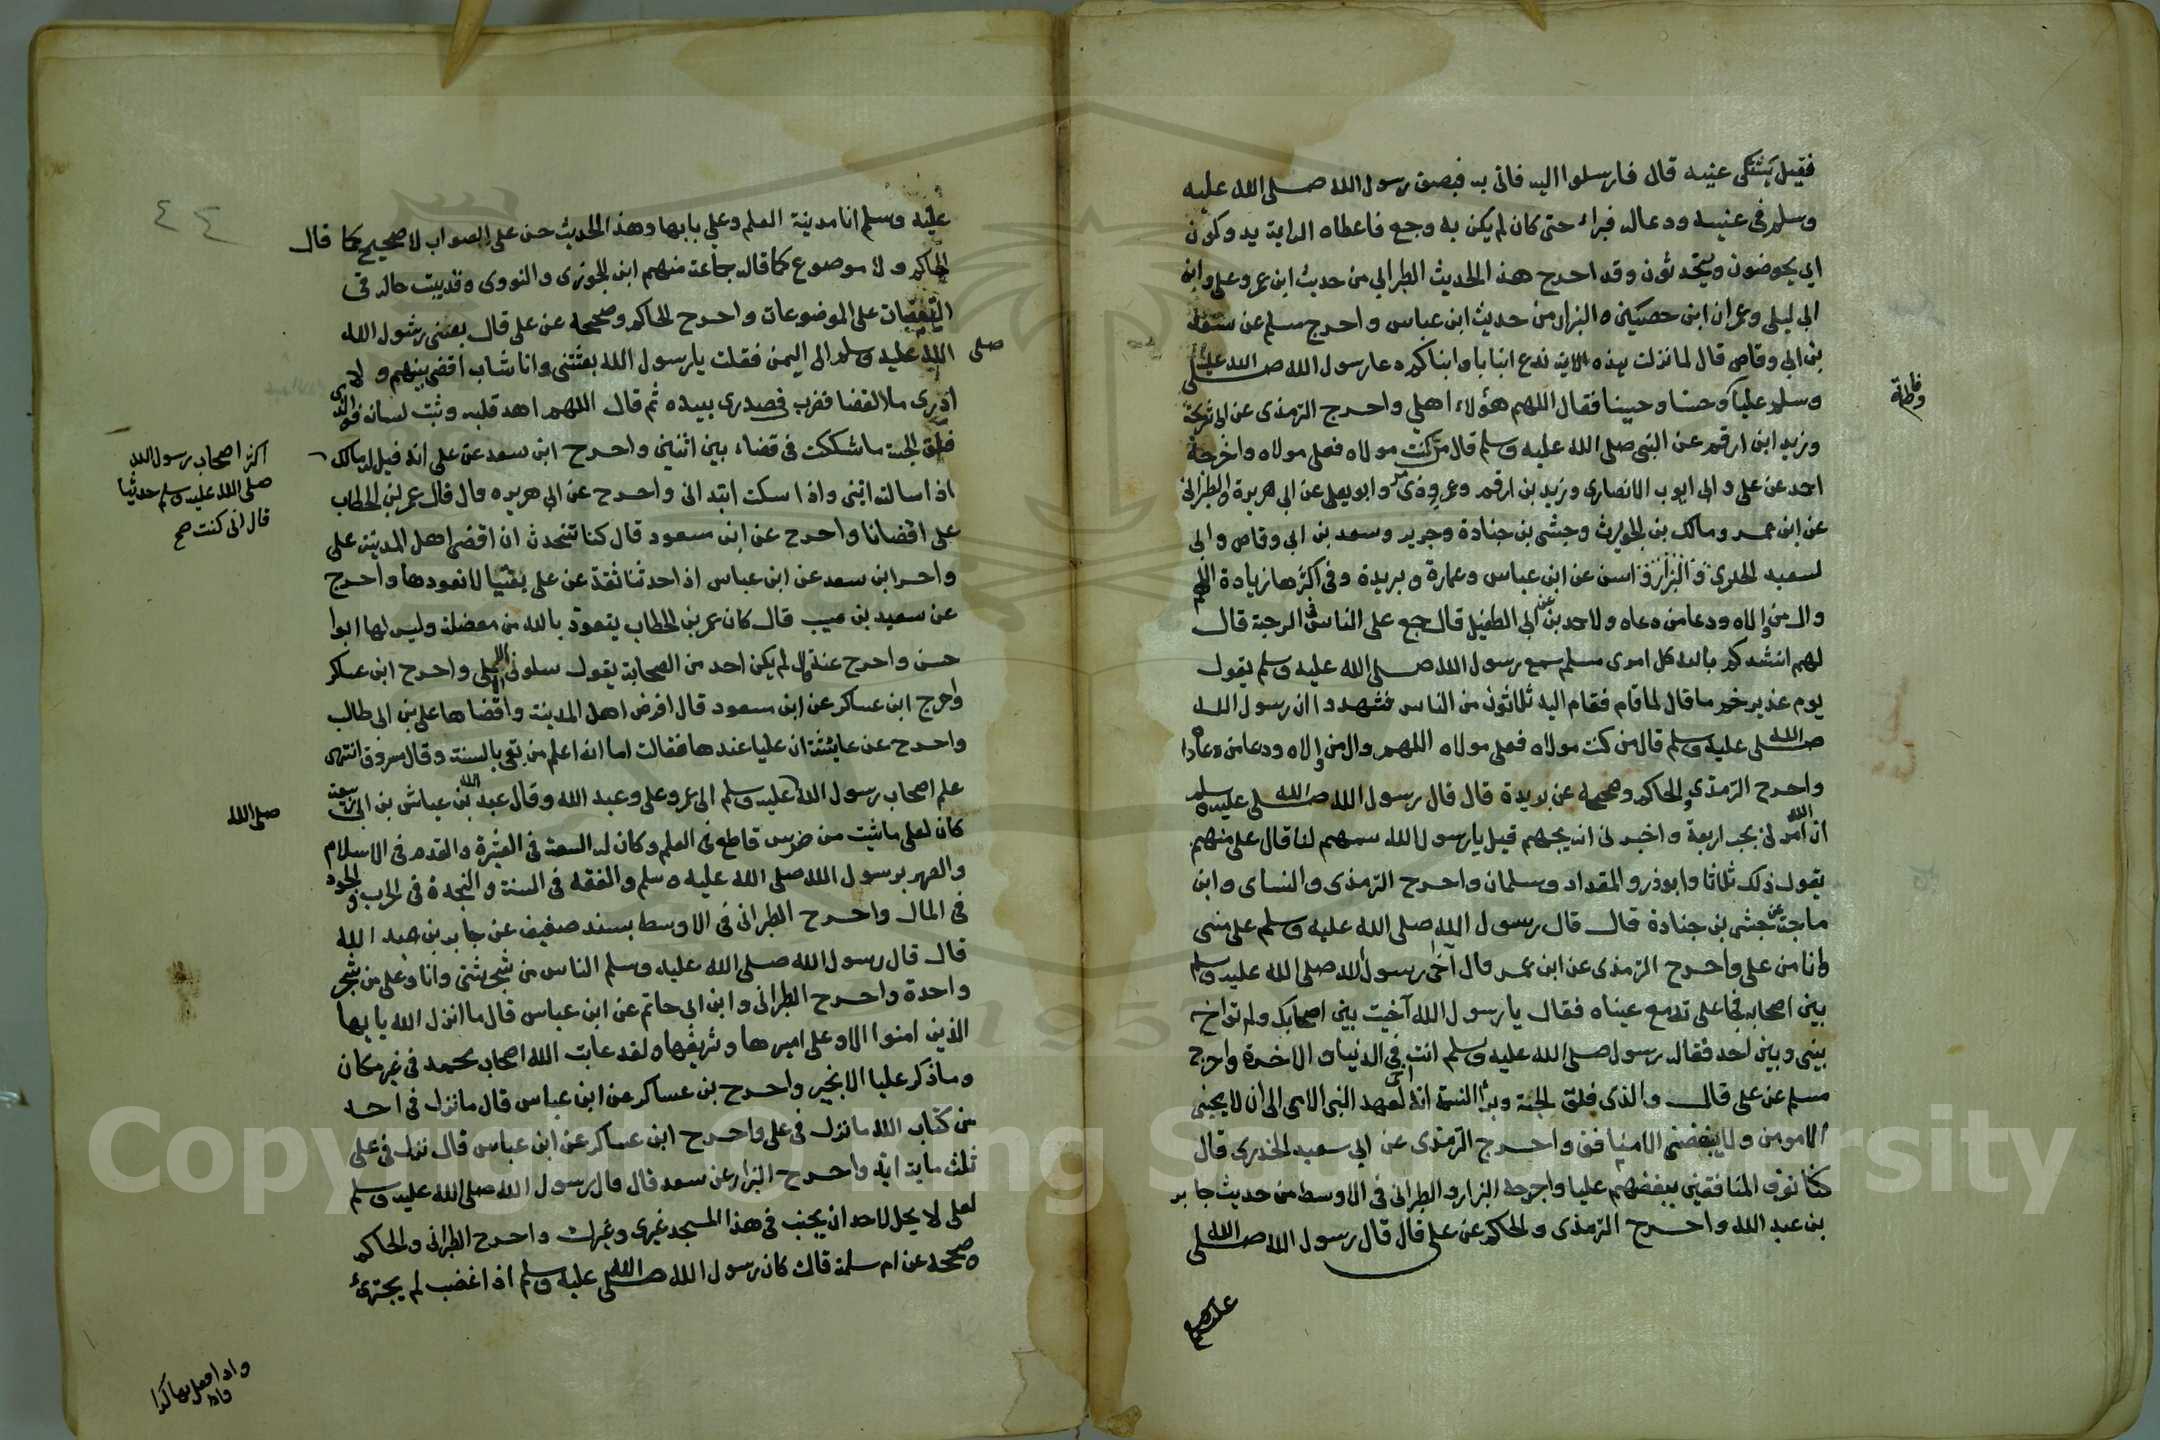 فقيل يشتكى عينيه قال فارسلوا اليه فاتى به فبصق رسول الله صلى الله عليه
وسلم فى عينيه ودعا له فبراء حتى كان لم يكن به وجع فاعطاه الراية يدوكون
اي يخوضون ويتحدثون وقد اخرج هذا الحديث الطبرانى من حديث ابن عمر وعلى وابن
ابى ليلى وعمران ابن حصين والبزار من حديث ابن عباس واخرج مسلم عن سعد
بن ابى وقاص قال لما نزلت هذه الاية ندع ابنانا وابناكم دعا رسول الله صلى الله عليه
وسلم عليا وحسنا وحسينا فقال اللهم هؤلاء اهلي واخرج الترمذى عن ابى سريحة
وفاطمة
وزيد ابن ارقم عن النبى صلى الله عليه وسلم قال من كنت مولاه فعلى مولاه واخرجه
احمد عن على وابى ايوب الانصارى وزيد بن ارقم وعمرو ذى مر وابو يعلى عن ابى هريرة والطبرانى
عن ابن عمر ومالك بن الحويرث وحبشى بن جنادة وجرير وسعد بن ابى وقاص وابى
لسعيد الخدرى والبزار وانس عن ابن عباس وعمارة وبريدة وفى اكثرها زيادة اللهم
وال من والاه ودعا من دعاه ولاحمد بن عن ابى الطفيل قال جمع على الناس فى الرحبة قال
لهم انشدكم بالله كل امرى مسلم سمع رسول الله صلى الله عليه وسلم يقول
يوم غدير خم ما قال لما قام فقام اليه ثلاثون من الناس فشهدوا ان رسول الله
صلى الله عليه وسلم قال من كنت مولاه فعلى مولاه اللهم وال من والاه ودعا من دعاه
واخرج الترمذى والحاكم وصححه عن بريدة قال قال رسول الله صلى الله عليه وسلم
ان الله امرنى بحب اربعة واخبرنى انه يحبهم قيل يا رسول الله سمهم لنا قال على منهم
يقول ذلك ثلاثا وابوذر والمقداد وسلمان واخرج الترمذى والنساى وابن
ماجة عن حبشى بن جنادة قال قال رسول الله صلى الله عليه وسلم على منى
وانا من على واخرج الترمذى عن ابن عمر قال آخى رسول الله صلى الله عليه وسلم
بين اصحابه فجا على تدمع عيناه فقال يا رسول الله آخيت بين اصحابك ولم تواخ
بينى وبين احد فقال رسول صلى الله عليه وسلم انت اخى فى الدنيا والاخرة واخرج
مسلم عن على قال والذى فلق الحبة وبرأ النسمة انه لعهد النبى الامى الى ان لا يحبنى
الا مومن ولا يبغضنى الا منافق واخرج الترمذى عن ابي سعيد الخدرى قال
كنا نعرف المنافقين ببغضهم عليا واخرجه البزار والطبرانى فى الاوسط من حديث جابر
بن عبد الله واخرج الترمذى والحاكم عن على قال قال رسول الله صلى الله
عليه
٤٤
عليه وسلم انا مدينة العلم وعلي بابها وهذا الحديث حسن على الصواب لا صحيح كما قال
الحاكم ولا موضوع كما قاله جماعة منهم ابن الجوزى والنووى وقد بينت حاله فى
التعقبات على الموضوعات واخرج الحاكم وصححه عن على قال بعثنى رسول الله
صلى
الله عليه وسلم الى اليمن فقلت يا رسول الله بعثتنى وانا شاب اقضى بينهم ولا
ادرى ما القضا فضرب فى صدرى بيده ثم قال اللهم اهد قلبه وثبت لسانه فوالذى
فلق الحبة ما شككت فى قضاء بين اثنين واخرج ابن سعد عن على انه قيل له مالك
اكثر اصحاب رسول الله
صلى الله عليه وسلم حديثا
قال انى كنت صح
اذا سالته انبنى واذا سكت ابتدانى واخرج عن ابى هريره قال قال عمر بن الخطاب
على اقضانا واخرج عن ابن مسعود قال كنا نتحدث ان اقضى اهل المدينة على
واخر ابن سعد عن ابن عباس اذا حدثنا ثقة عن على بفتيا لا نعودها واخرج
عن سعيد بن مسيب قال كان عمر بن الخطاب يتعوذ بالله من معضلة وليس لها ابوا
حسن واخرج عنه قال لم يكن احد من الصحابة يقول سلونى الا على واخرج ابن عساكر
واخرج ابن عساكر عن ابن مسعود قال افرض اهل المدينة واقضاها على بن ابى طالب
واخرج عن عايشة ان عليا عندها فقالت اما انه اعلم من بقى بالسنة وقال مسروق انتهى
علم اصحاب رسول الله عليه وسلم الى عمر وعلى وعبد الله وقال عبد الله بن عياش بن ابى ربيعة
صلى الله
كان لعلى ما شيت من ضرس قاطع فى العلم وكان له السعة فى العشرة والقدم فى الاسلام
والصهر برسول الله صلى الله عليه وسلم والفقه فى السنة والنجدة فى الحرب والجود
فى المال واخرج الطبرانى فى الاوسط بسند ضعيف عن جابر بن عبد الله
قال قال رسول الله صلى الله عليه وسلم الناس من شجر شتى وانا وعلى من شجر
واحدة واخرج الطبرانى وابن ابى حاتم عن ابن عباس قال ما انزل الله يا يها
الذين امنوا الا وعلى اميرها وشريفها ولقد عاتب الله اصحاب محمد فى غير مكان
وما ذكر عليا الا بخير واخرج بن عساكر عن ابن عباس قال ما نزل فى احد
من كتاب الله ما نزل فى على واخرج ابن عساكر عن ابن عباس قال نزل فى على
ثلث ماية اية واخرج البزار عن سعد قال قال رسول الله صلى الله عليه وسلم
لعلى لا يحل لاحد ان يجنب فى هذا المسجد غيرى وغيرك واخرج الطبرانى والحاكم
وصححه عن ام سلمة قالت كان رسول الله صلى الله عليه وسلم اذا غضب لم يجترئ
Copyright © King Saud University
1957